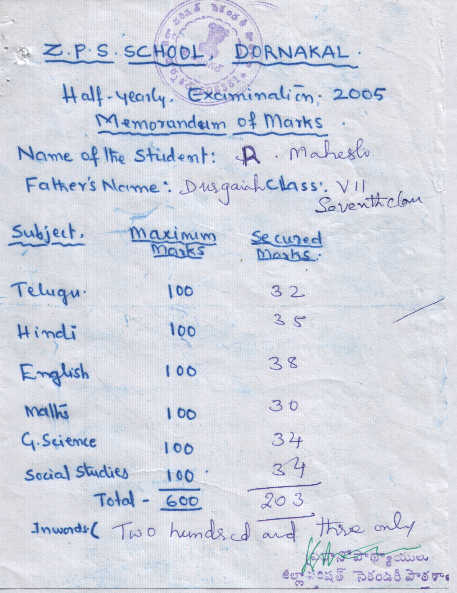 Z.P.S. SCHOOL, DORNAKAL.
Half-yearly. Examination: 2005
Memorandum of Marks.
Name of the Student: R. Mahesh
Father's Name: Durgaiah Class: VII
Seventh class
Subject. Maximum Marks Secured Marks.
Telugu. 100 32
Hindi 100 35
English 100 38
Maths 100 30
G. Science 100 34
Social Studies 100 34
Total - 600 203
Inwords ( Two hundred and three only
ప్రధానోపాధ్యాయులు
జిల్లా పరిషత్ సెకండరీ పాఠశాల